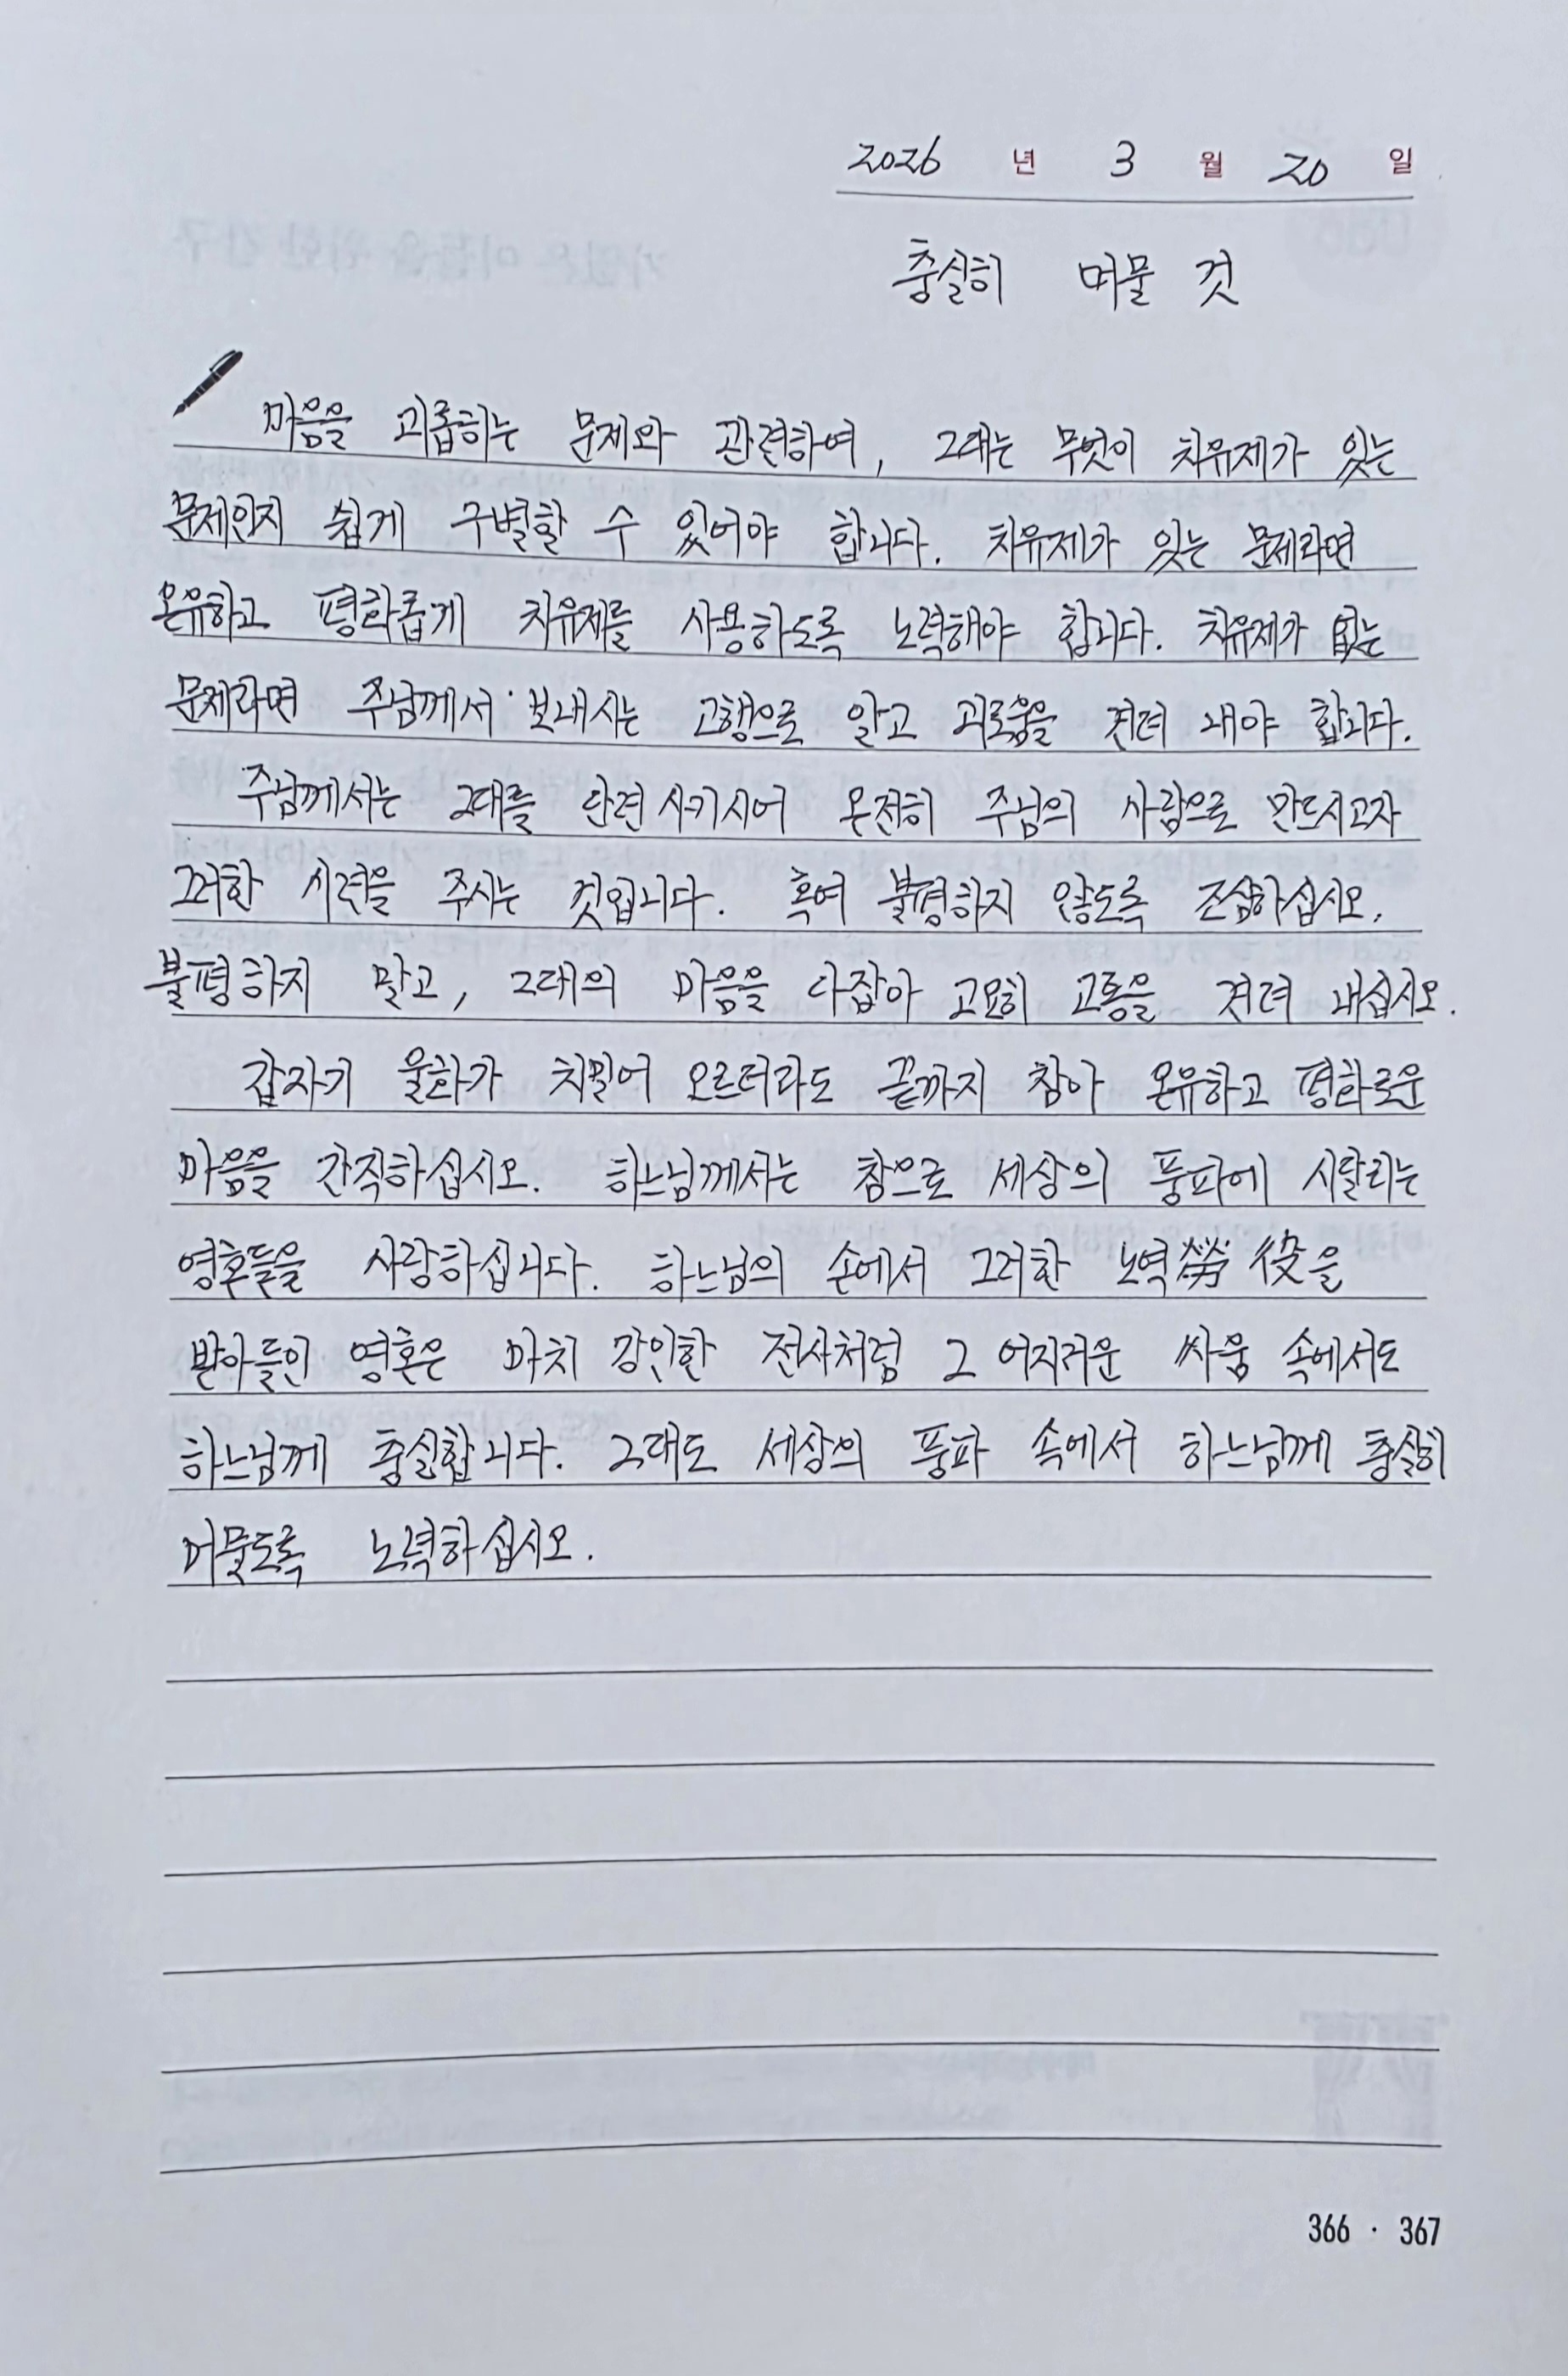 2026 년 3 월 20 일
충실히 머물 것
마음을 괴롭히는 문제와 관련하여, 그대는 무엇이 치유제가 있는
문제인지 쉽게 구별할 수 있어야 합니다. 치유제가 있는 문제라면
온유하고 평화롭게 치유제를 사용하도록 노력해야 합니다. 치유제가 없는
문제라면 주님께서 보내시는 고행으로 알고 괴로움을 견뎌 내야 합니다.
주님께서는 그대를 단련시키시어 온전히 주님의 사람으로 만드시고자
그러한 시련을 주시는 것입니다. 혹여 불평하지 않도록 조심하십시오.
불평하지 말고, 그대의 마음을 다잡아 고요히 고통을 견뎌 내십시오.
갑자기 울화가 치밀어 오르더라도 끝까지 참아 온유하고 평화로운
마음을 간직하십시오. 하느님께서는 참으로 세상의 풍파에 시달리는
영혼들을 사랑하십니다. 하느님의 손에서 그러한 노역勞役을
받아들인 영혼은 마치 강인한 전사처럼 그 어지러운 싸움 속에서도
하느님께 충실합니다. 그대도 세상의 풍파 속에서 하느님께 충실히
머물도록 노력하십시오.
366 · 367